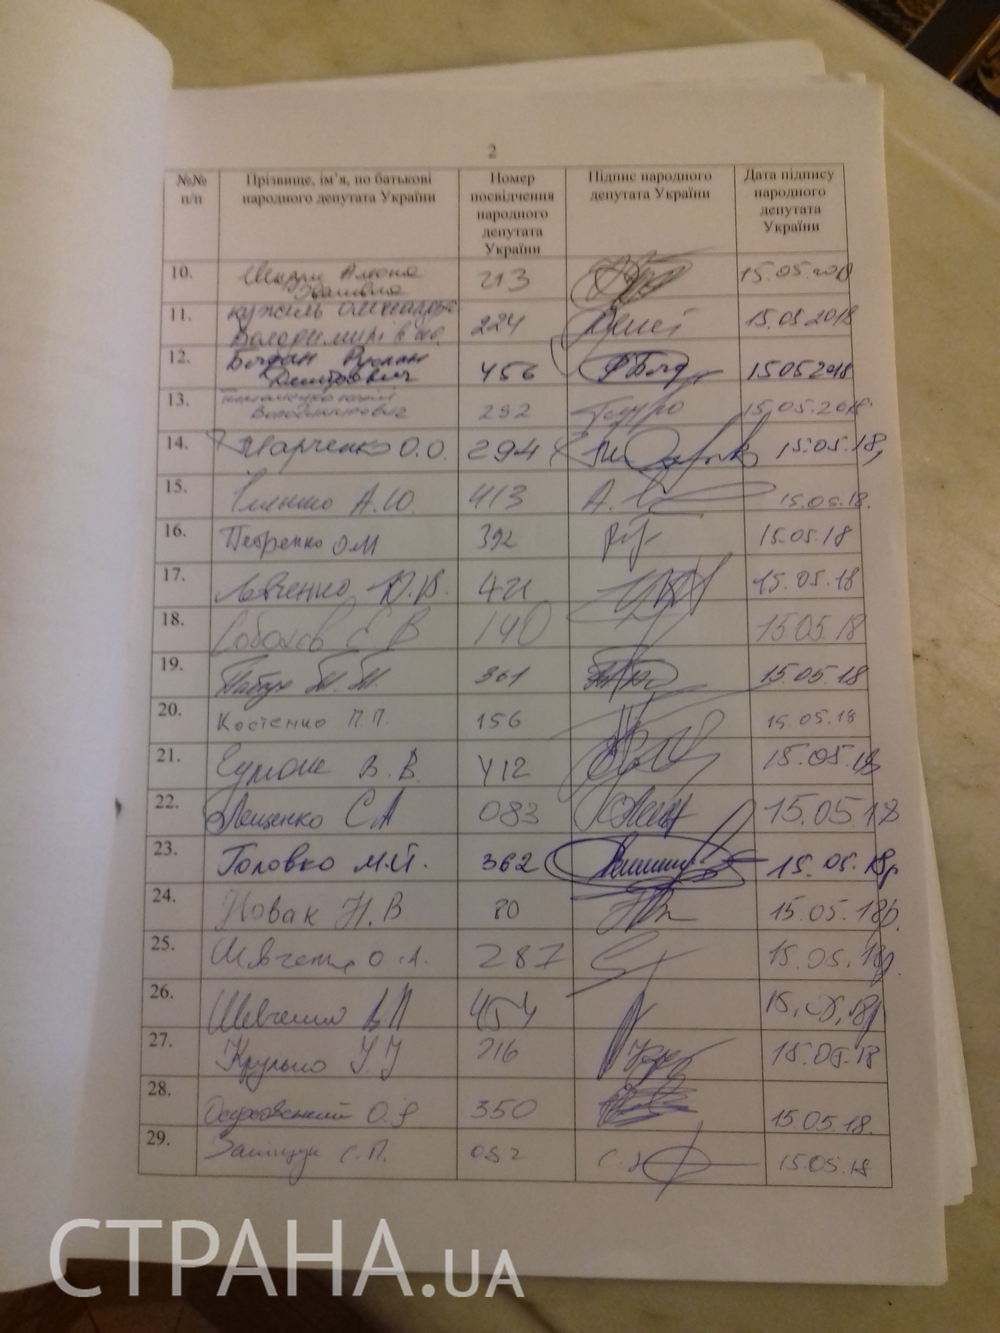 2
№№ п/п
Прізвище, ім’я, по батькові народного депутата України
Номер посвідчення народного депутата України
Підпис народного депутата України
Дата підпису народного депутата України
10. Шкрум Альона Іванівна 213 15.05.2018
11. Кужель Олександра Володимирівна 224 15.05.2018
12. Богдан Руслан Дмитрович 456 15052018
13. Володимирович 292 15.05.2018
14. Марченко О.О. 294 15.05.18
15. Іллєнко А.Ю. 413 15.05.18.
16. Петренко О М 392 15.05.18
17. Левченко Ю.В. 421 15.05.18
18. Соболєв Є В 140 15 05 18
19. 361 15.05.18
20. Костенко П.П. 156 15.05.18
21. В. В. 412 15.05.18
22. Лещенко С А 083 15.05.18
23. Головко М.Й. 362 15.05.18р
24. Новак Н.В 80 15.05.18р.
25. Шевченко О.Л. 287 15.05.18р.
26. Шевченко В Л 454 15.05.18р
27. Крулько І.І 216 15.05.18
28. Осуховський О.І 350 15.05.18.
29. Заліщук С.П. 15.05.18
СТРАНА.UA